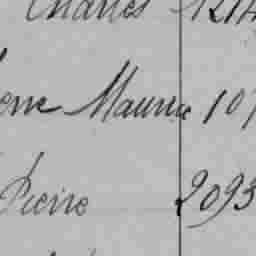 Charles 1214
erre Maurice 107
Pierre 2093